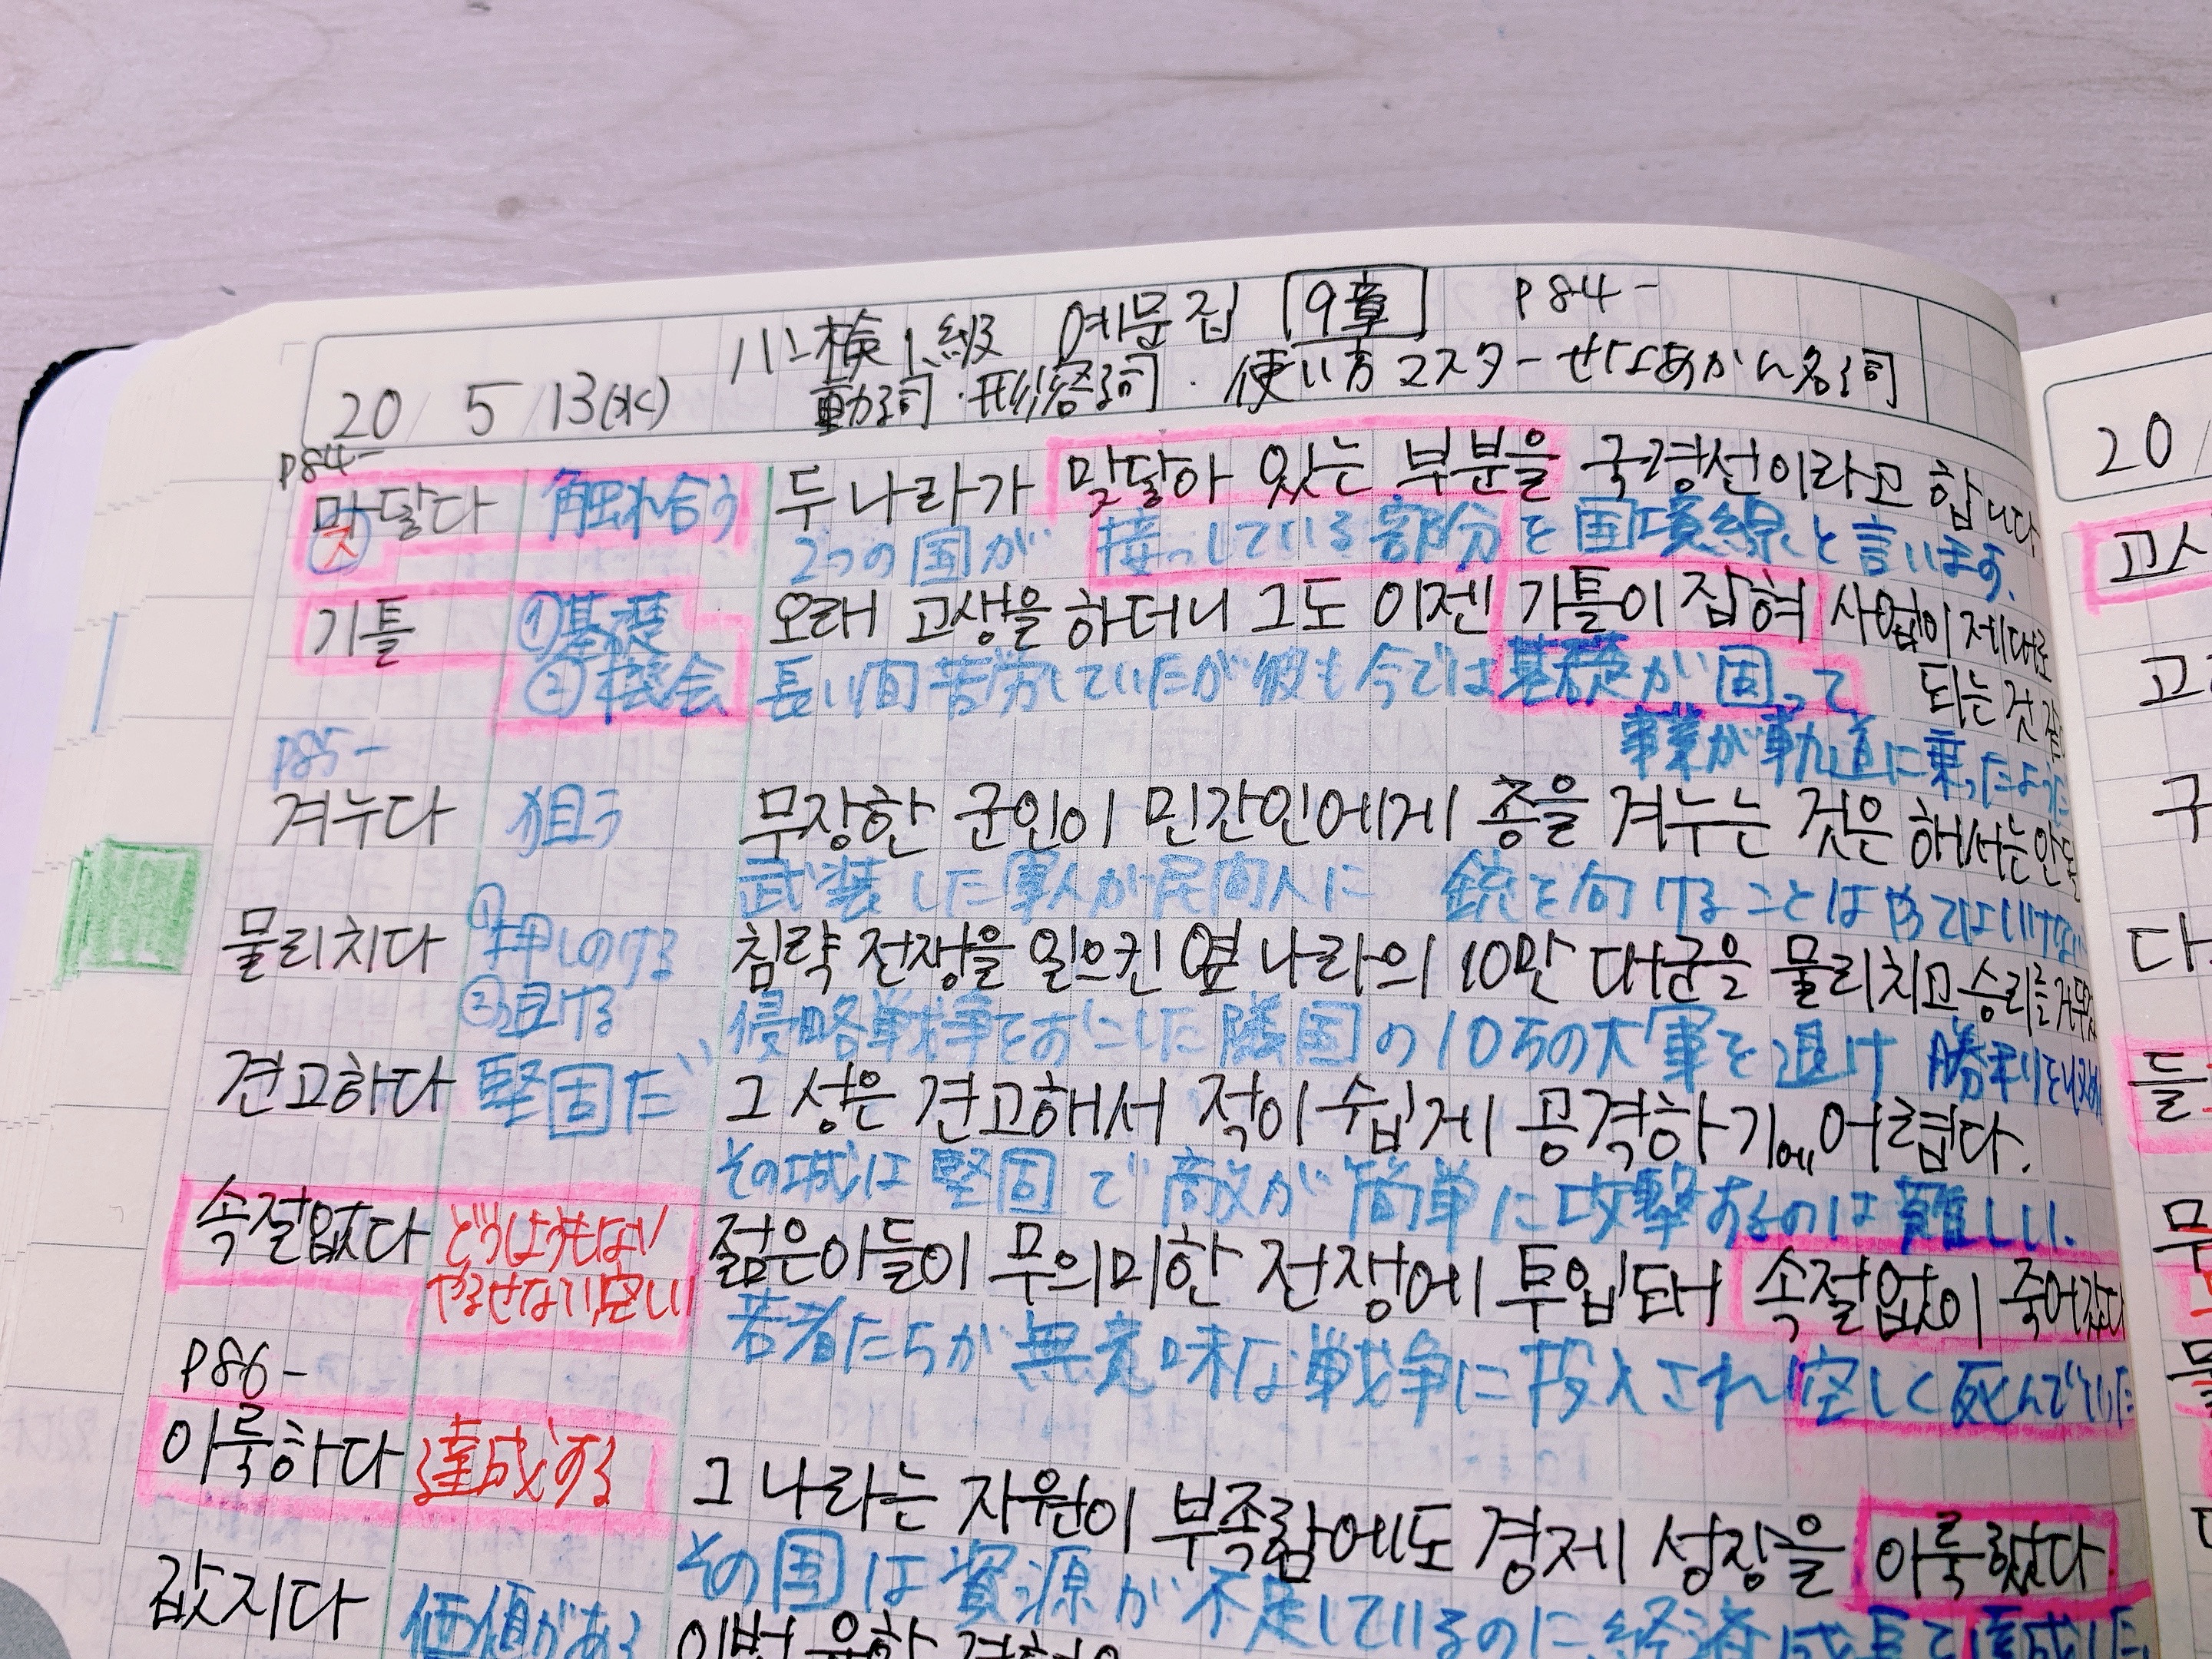 ハン検1級 예문집 9章 P84-
20/5/13(水) 動詞・形容詞・使い方マスターせなあかん名詞
P84-
맞닿다 触れ合う 두 나라가 맞닿아 있는 부분을 국경선이라고 합니다
ㅈ
2つの国が 接している部分を国境線と言います。
기틀 ①基礎 오래 고생을 하더니 그도 이젠 기틀이 잡혀 사업이 제대로
되는 것
②機会 長い間苦労していたが彼も今では基礎が固って
事業が軌道に乗ったように
P85-
겨누다 狙う 무장한 군인이 민간인에게 총을 겨누는 것은 해서는 안
武装した軍人が民間人に 銃を向けることはやってはいけない
물리치다 ①押しのける 침략 전쟁을 일으킨 옆 나라의 10만 대군을 물리치고 승리를
②退ける 侵略戦争をおこした隣国の10万の大軍を退け 勝利を
견고하다 堅固だ 그 성은 견고해서 적이 쉽게 공격하기에 어렵다.
その城は堅固で敵が簡単に攻撃するのは難しい.
속절없다 どうしようもない 젊은이들이 무의미한 전쟁에 투입돼 속절없이 죽어갔다
やるせない,空しい 若者たちが無意味な戦争に投入され空しく死んでいった
P86-
이룩하다 達成する 그 나라는 자원이 부족함에도 경제 성장을 이룩했다
その国は資源が不足しているのに,経済成長を達成した
값지다 価値がある 이번
20/
고
구
다
들
무
물